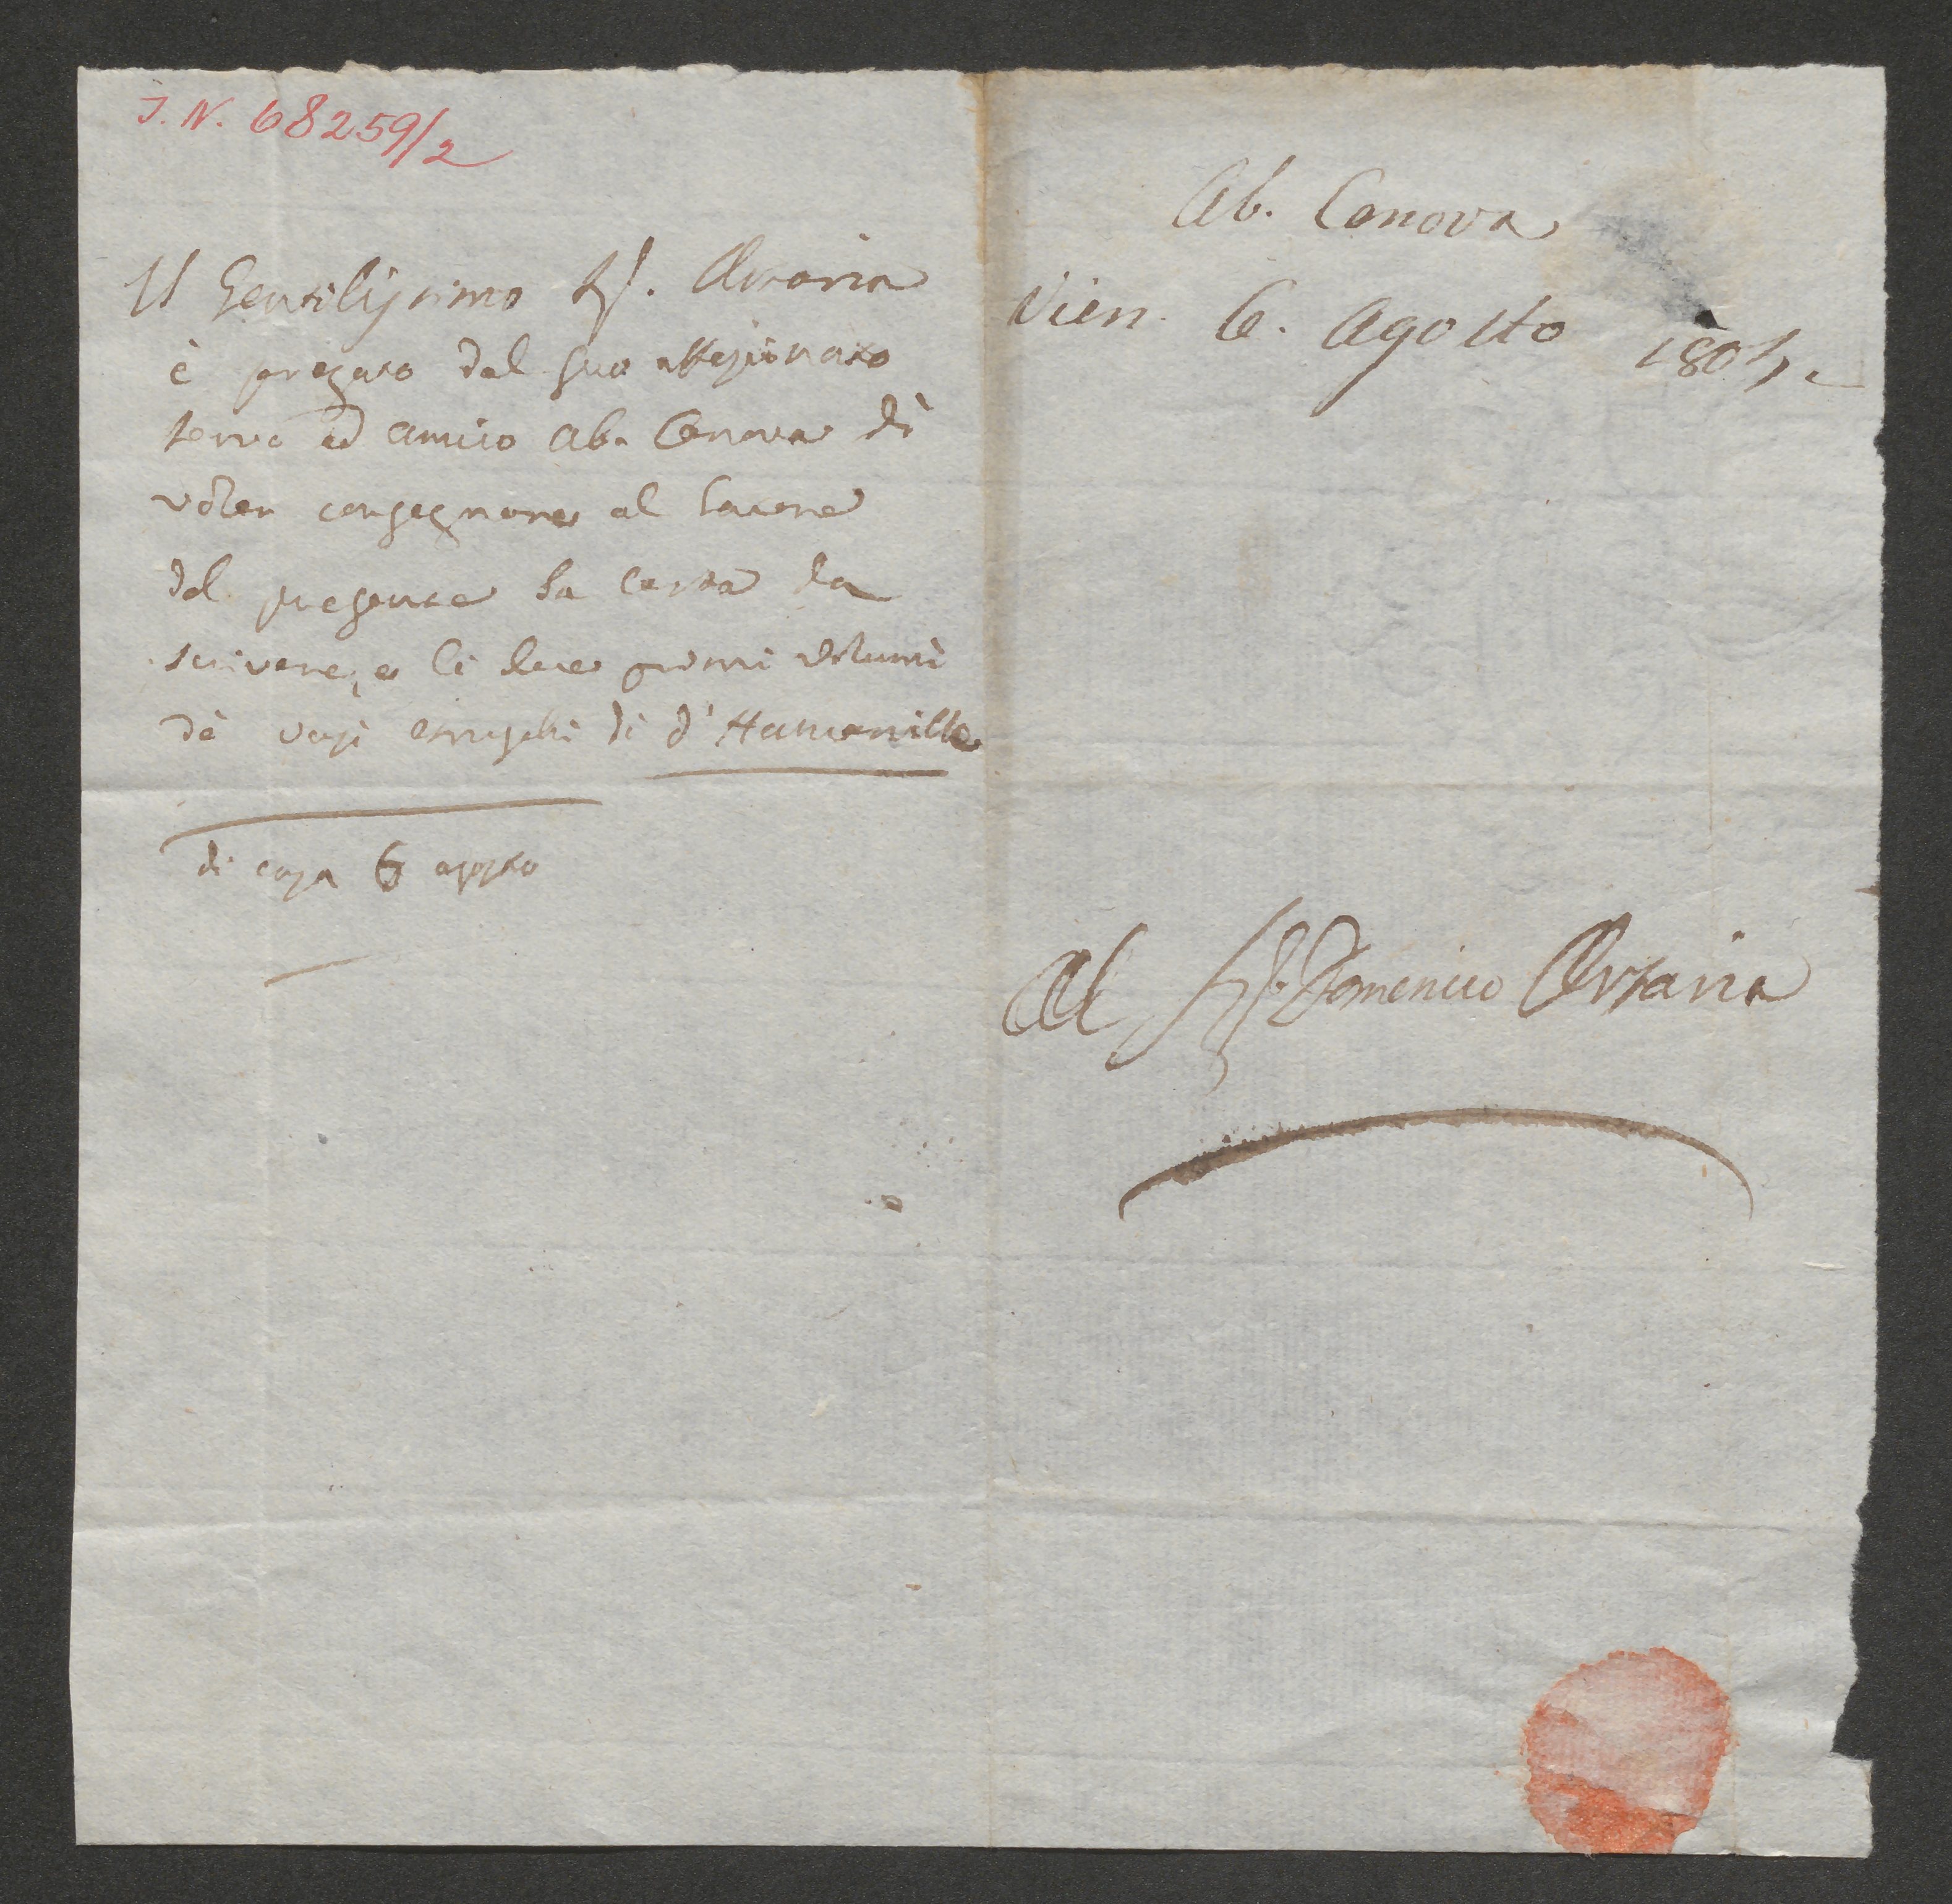 I. N. 68259/2
Il Gentilissimo Sig. Artaria
è pregato dal suo affezionato
servo ed amico Ab. Canova di
voler consegnare al latore
del presente la carta da
scrivere, e li due primi volumi
de vasi etruschi di d'Hamamilton
di casa 6 agosto
Ab. Canova
Vien. 6. Agosto 1804.
Al Sig. Domenico Artaria